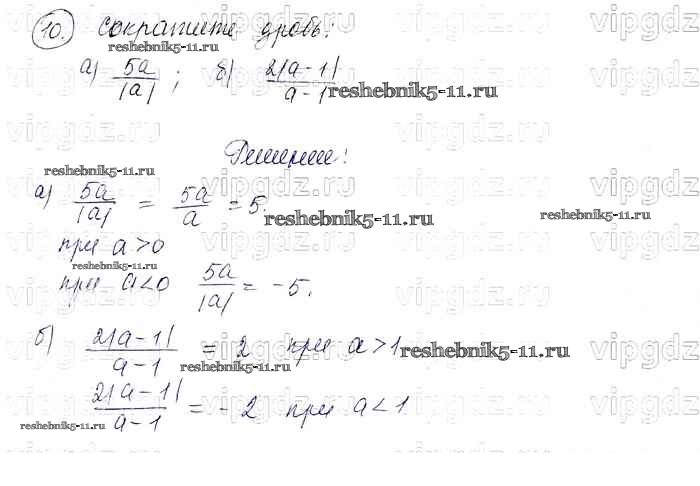 10. Сократите дробь:
а) 5a/|a| ; б) 2|a-1|/a-1
Решение:
а) 5a/|a| = 5a/a = 5.
при a>0
при a<0 5a/|a| = -5.
б) 2|a-1|/a-1 = 2 при a>1
2|a-1|/a-1 = -2 при a<1
reshebnik5-11.ru
reshebnik5-11.ru
reshebnik5-11.ru
reshebnik5-11.ru
reshebnik5-11.ru
reshebnik5-11.ru
reshebnik5-11.ru
reshebnik5-11.ru
reshebnik5-11.ru
vipgdz.ru